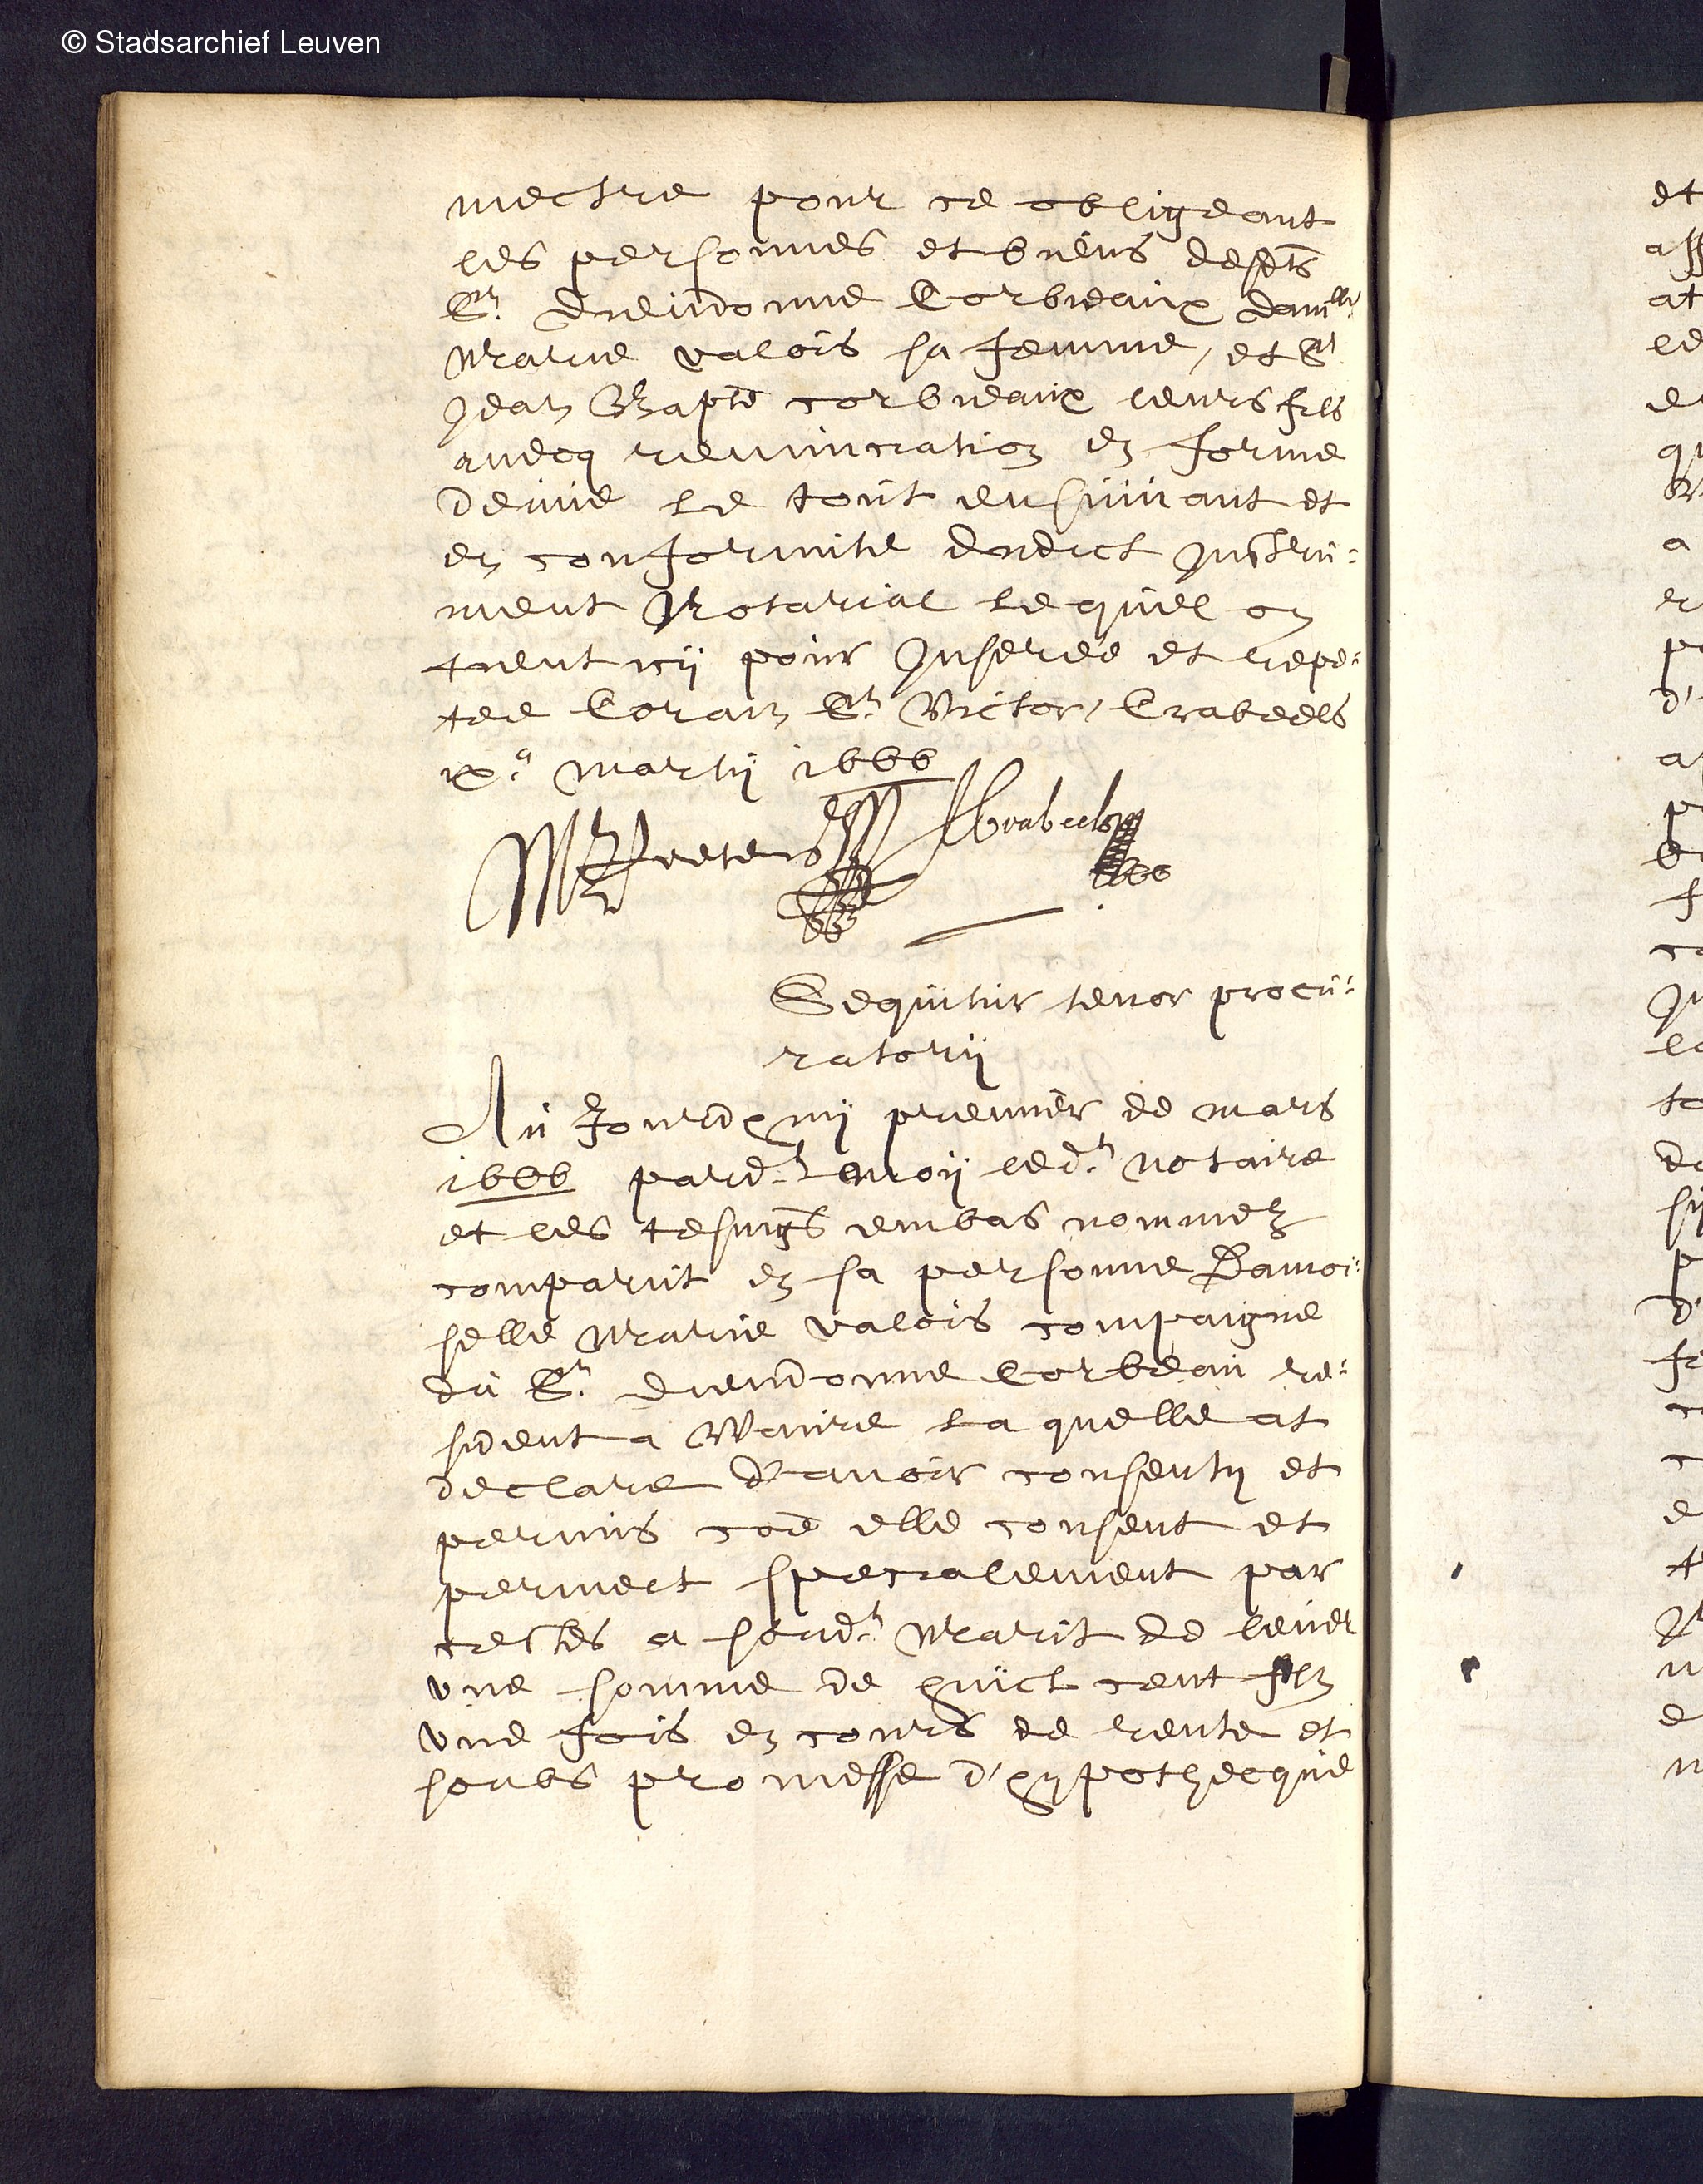 © Stadsarchief Leuven
mectre pour ce obligeant
les personnes et biens desdts
Sr. Dieudonne Corbeaux damlle
Marie valois sa femme, et Sr
Jean Bapte corbeaux leurs fils
avecq renunciation en forme
deuue le tout ensuivant et
en conformite dudict Instru=
ment Notarial lequel on
tient icÿ pour Inseree et repe=
tee Coram Sr. Victor, Crabeels
ixa. martÿ 1666
Crabeels
1666
Sequitur tenor procu=
ratorÿ
Au Jourdhuÿ premier de mars
1666 pardt. moÿ ledt. notaire
et les tesmgs embas nommez
comparut en sa personne Damoi=
selle Marie valois compaigne
du Sr. Dieudonne Corbeau re=
sident a Wavre la quelle at
declare d'avoir consenty et
permis coe elle consent et
permect specialement par
cestes a sondt. Marit de lever
une somme de huict cent flz
une fois en cours de rente et
soubs promesse d'hypothecque
et
le
a